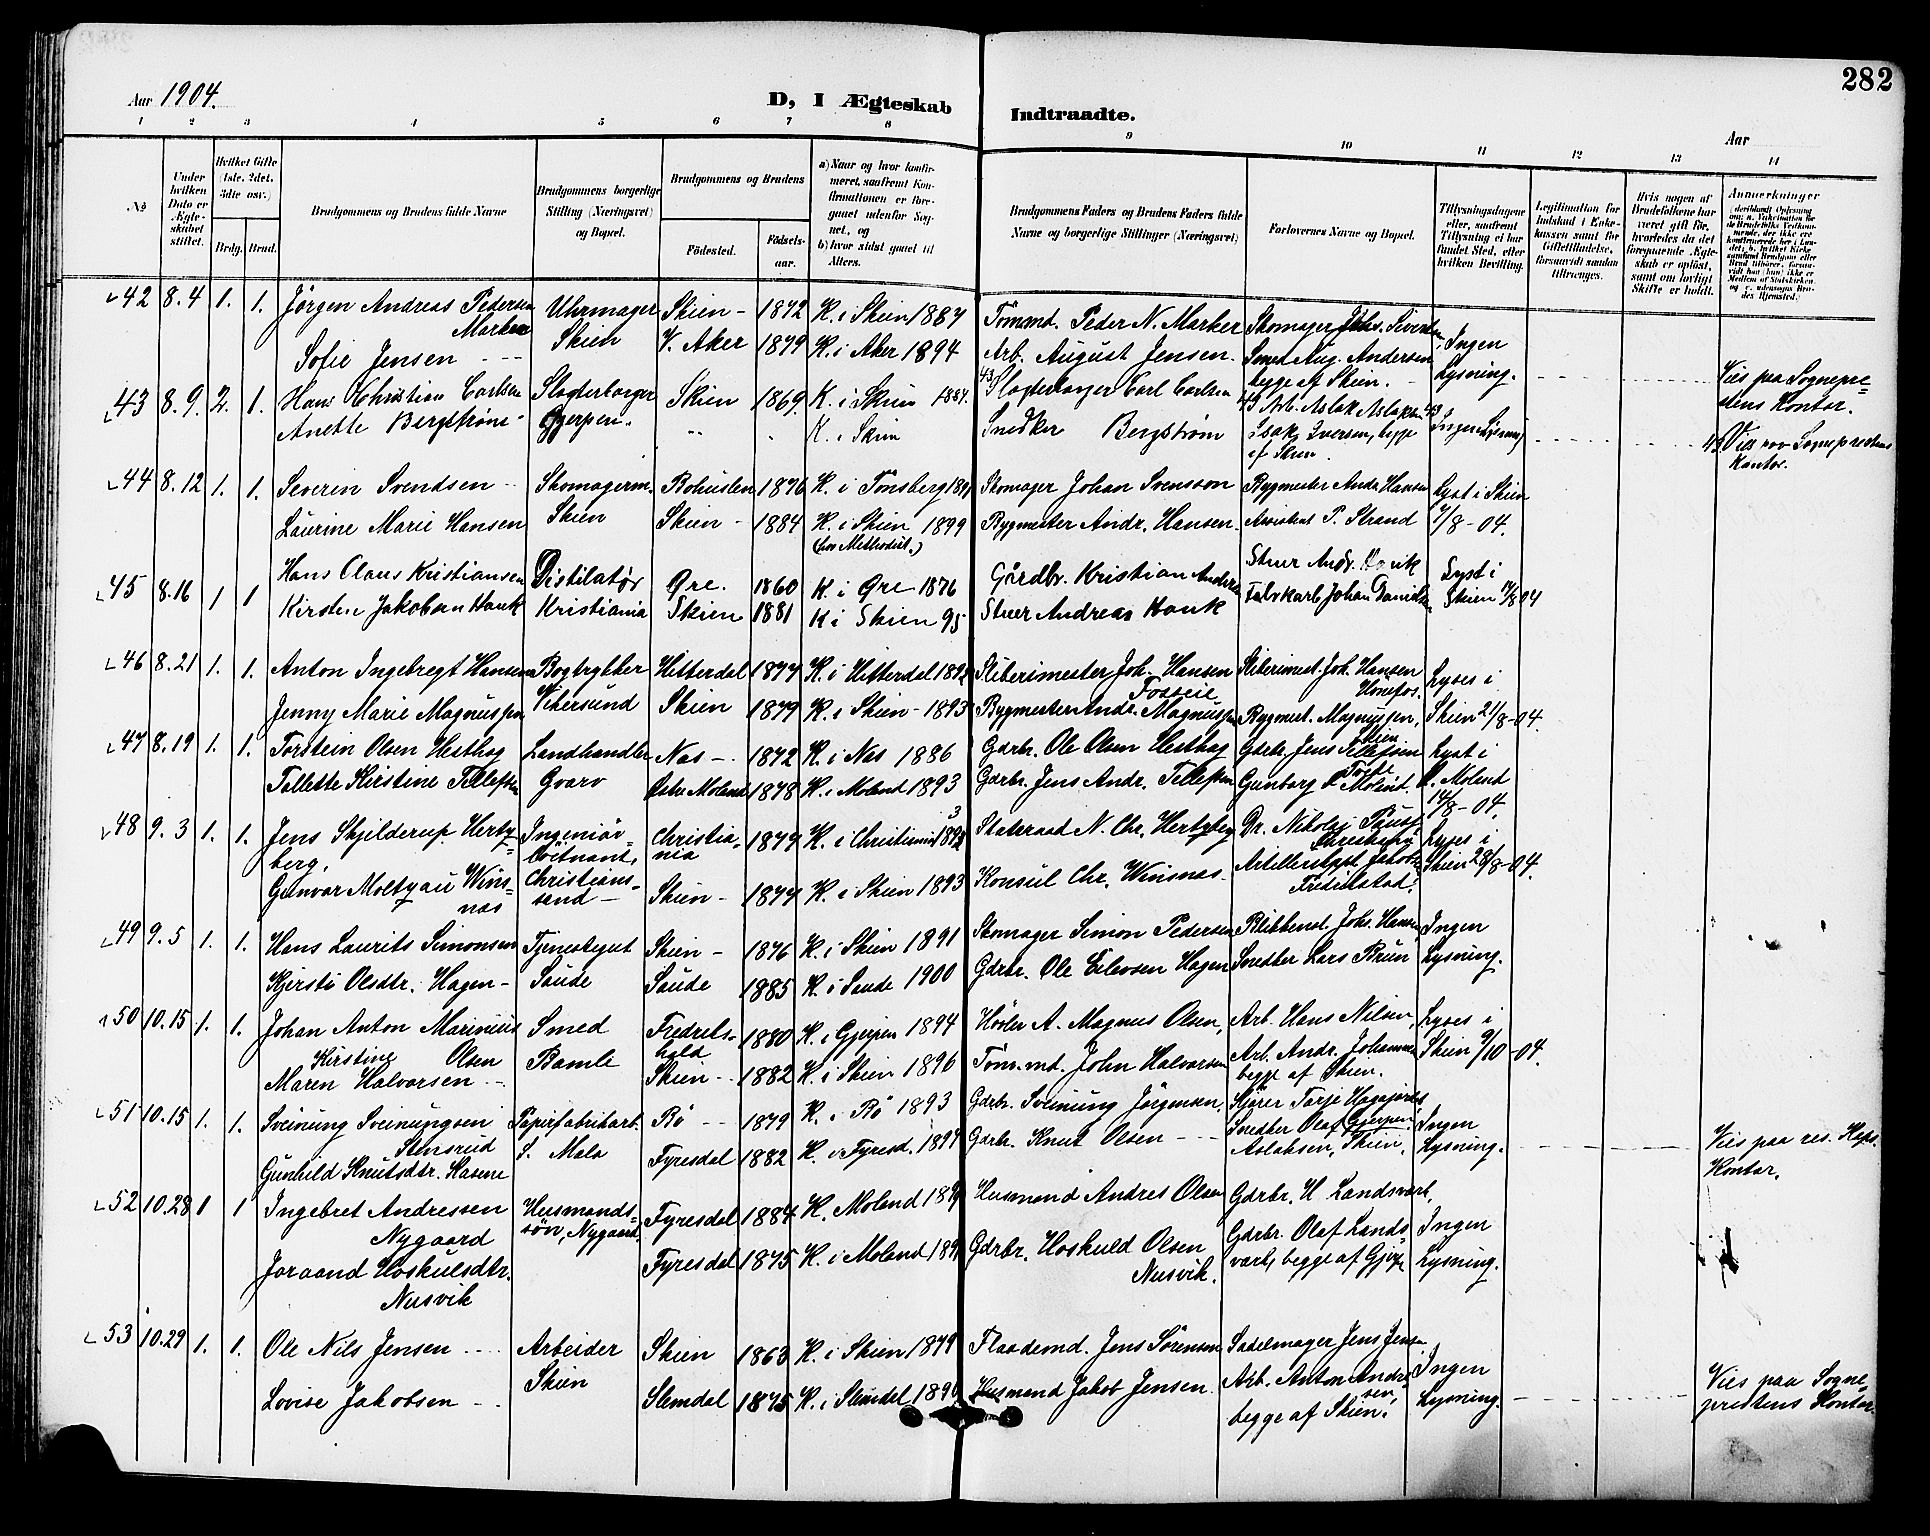 282
Aar 1904.
D, I Ægteskab Indtraadte.
Aar
1 2 3 4 5 6 7 8 9 10 11 12 13 14
№
Under hvilken Dato er Ægteskabet stiftet.
Hvilket Gifte (1ste, 2det, 3die osv.)
Brdg. Brud.
Brudgommens og Brudens fulde Navne
Brudgommens borgerlige Stilling (Næringsvei) og Bopæl.
Brudgommens og Brudens
Fødested. Fødselsaar.
a) Naar og hvor konfirmeret, saafremt Konfirmationen er foregaaet udenfor Sognet, og
b) hvor sidst gaaet til Alters.
Brudgommens Faders og Brudens Faders fulde Navne og borgerlige Stillinger (Næringsvei)
Forlovernes Navne og Bopæl.
Tillysningsdagene eller, saafremt Tillysning ei har fundet Sted, efter hvilken Bevilling.
Legitimation for Indskud i Enkekassen samt for Giftetilladelse, forsaavidt saadan tiltrænges.
Hvis nogen af Brudefolkene har været gift før, hvorledes da det foregaaende Ægteskab er opløst, samt om lovligt Skifte er holdt.
Anmærkninger
42 8.4 1. 1. Jörgen Andreas Pedersen Uhrmager Skien - 1872 K. i Skien 1887 Tömmd. Peder N. Marker Skomager Johs. Sivertsen, Ingen
Marker Skien
Sofie Jensen V. Aker 1879 K. i Aker 1894 Arb. August Jensen. Smed Aug. Andersen Lysning.
begge af Skien. Vies paa Sogneprestens Kontor.
43 8.9. 2. 1. Hans Christian Carlsen Slagterborger Skien 1869. K. i Skien 1884. 43 Slagterborger Carl Carlsen 43 Arb. Aslak Aslaksen 43 Ingen Lysning
Anette Bergstrøm Gjerpen. " K. i Skien Snedker Bergstrøm Isak Iversen, begge af Skien. 43 Vies paa Sogneprestens Kontor.
44 8.12 1. 1. Severin Svendsen Skomagerm. Bohuslen 1876 K. i Tönsberg Skomager Johan Svensson Bygmester Andr. Hansen Lyst i Skien
Laurine Marie Hansen Skien Skien - 1884 K. i Skien 1899 Bygmester Andr. Hansen. Assistent P. Strand 7/8-04.
(hos Methodist.)
45 8.16 1 1 Hans Olaus Kristiansen Distilatør Øre. 1860 K. i Øre 1876 Gårdbr. Kristian Andersen Stuer Andr. Hauk Lyst i
Kirsten Jakobsen Hauk Kristiania Skien 1881 K i Skien 95 Stuer Andreas Hauk Fabrkarb Johan Danielsen Skien 14/8 04
46 8.21 1. 1. Anton Ingebregt Hansen Bogtrykker Hitterdal 1877 K. i Hitterdal 1892 Sliberimester Joh. Hansen Sliberimest. Joh. Hansen Lyses i
Fosseie Hönefos.
Jenny Marie Magnussen Vikersund Skien 1879 K. i Skien - 1893 Bygmester Andr. Magnussen Bygmest. Magnussen, Skien Skien 21/8-04.
47 8.19 1. 1. Torstein Olsen Hesthag Landhandler Nas - 1872 K. i Nas 1886 Gdrbr. Ole Olsen Hesthag Gdrbr. Jens Tellefsen Lyst i
Tallette Kirstine Tellefsen Gvarv Østre Moland 1878 K. i Moland 1893 Gdrbr. Jens Andr. Tellefsen Gunborg Moland. Ø. Moland 14/8-04.
48 9.3 1. 1. Jens Skjilderup Hertzberg, Ingeniör Christiania 1879 K. i Christiania Statsraad N. Chr. Hertzberg Dr. Nikolai Paus, Lyses i
Löitnant, Christianssand -
Gunvor Moltzau Winsnas Skien - 1877 K. i Skien 1893 Konsul Chr. Winsnas. Fredrikstad. Skien 28/8-04.
49 9.5 1. 1. Hans Laurits Simonsen Tjenestegut Skien - 1876 K. i Skien 1891 Skomager Simon Pedersen Blikkensl. Johs. Hansen, Ingen
Kjersti Olsdtr. Hagen - Saude Saude 1885 K. i Saude 1900 Gdrbr. Ole Eilevsen Hagen Snedker Lars Brun Lysning.
50 10.15 1. 1. Johan Anton Marinius Smed Fredrikshald 1880 K. i Gjerpen 1894 A. Magnus Olsen, Arb. Hans Nilsen, Lyses i
Olsen
Kirstine
Maren Halvorsen Bamle Skien - 1882 K. i Skien 1896 Tömmd. John Halvorsen Arb. Andr. Johannesen begge af Skien. Skien 9/10-04.
51 10.15 1. 1. Sveinung Sveinungsen Papirfabrikarb. Bö 1879 K. i Bö 1893 Gdrbr. Sveinung Jörgensen, Kjörer Torje Gjerpen Ingen
Stensrud
Gunhild Knutsdtr. Kasene S. Mælo Fyresdal 1882 K. i Fyresd. 1897 Gdrbr. Knut Olsen Snedker Olaf Aslaksen, Skien. Lysning. Vies paa res. Kaps. Kontor.
52 10.28 1 1 Ingebret Andressen Husmandssön, Nygaard Fyresdal 1884 K. Moland Husmand Andres Olsen Gdrbr. H Landsverk,
Nygaard Ingen
Joraand Hoskulsdtr. Fyresdal 1875 K. i Moland Gdrbr. Hoskuld Olsen Gdrbr. Olaf Landsverk, begge af Gjerp. Lysning.
Nusvik Nusvik.
53 10.29 1. 1. Ole Nils Jensen Arbeider Skien 1863 K. i Skien 1879 Flaademd. Jens Sörensen Sadelmager Jens Jensen Ingen
Lovise Jakobsen Skien Slemdal 1875 K. i Slemdal Husmand Jakob Jensen. Arb. Anton Andresen, begge af Skien. Lysning. Vies paa Sogneprestens Kontor.